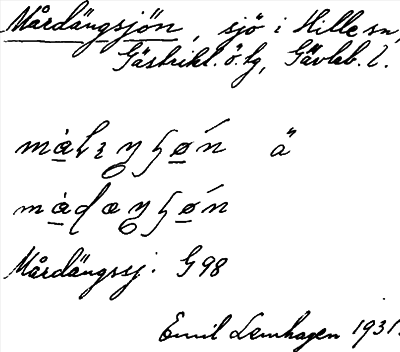 Mårdängsjön, sjö i Hille sn,
Gästrikl. ö. tg, Gävleb. l.
ä
Mårdängssj. G98
Emil Lemhagen 1931.